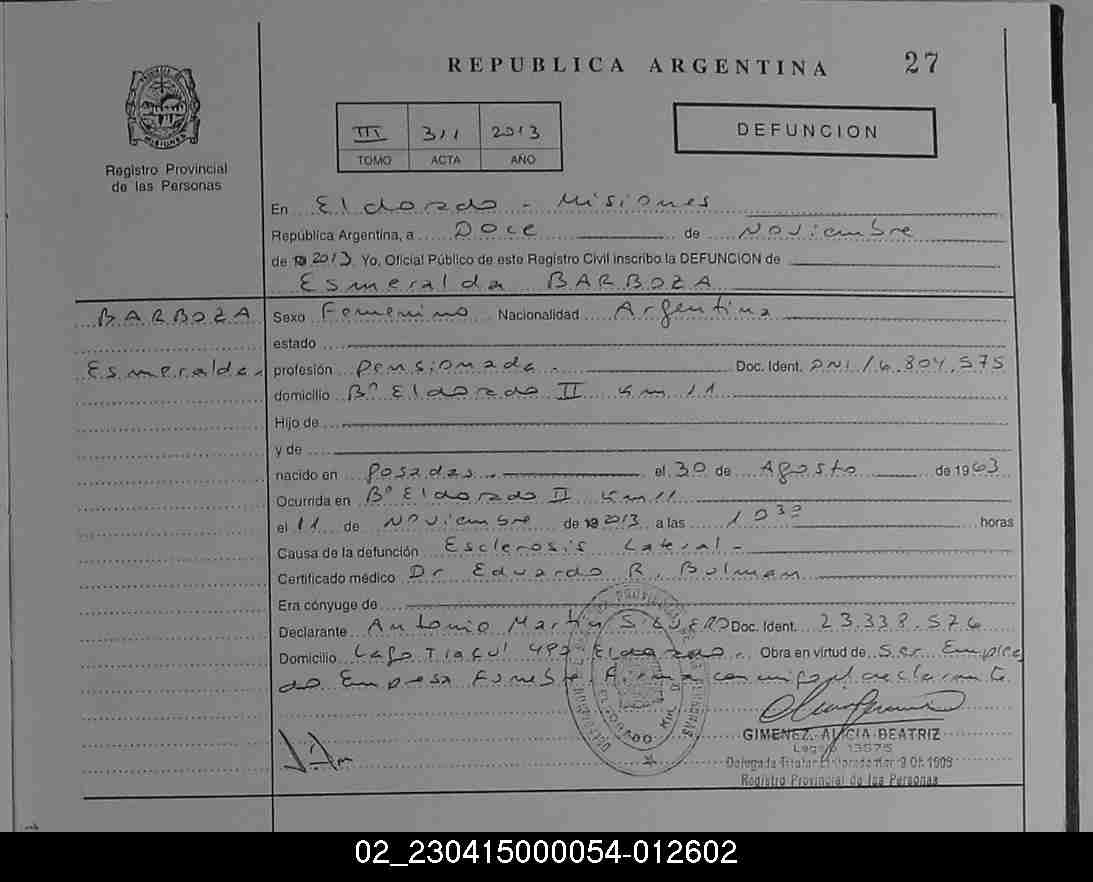 REPUBLICA ARGENTINA 27
III 311 2013
TOMO ACTA AÑO
DEFUNCION
MISIONES
Registro Provincial
de las Personas
En Eldorado - Misiones
República Argentina, a Doce de Noviembre
de 19 2013. Yo, Oficial Público de este Registro Civil inscribo la DEFUNCION de
Esmeralda BARBOZA
BARBOZA
Esmeralda.
Sexo Femenino Nacionalidad Argentina
estado
profesión pensionada. Doc. Ident. DNI 16.804.575
domicilio Bº Eldorado II km 11
Hijo de
y de
nacido en Posadas. el 30 de Agosto de 1963
Ocurrida en Bº Eldorado II km 11
el 11 de Noviembre de 19 2013. a las 10 30 horas
Causa de la defunción Esclerosis Lateral -
Certificado médico Dr Eduardo R. Bulman
Era cónyuge de
Declarante Antonio Martin Doc. Ident. 23.338.576
Domicilio Lago 482 Eldorado. Obra en virtud de Ser Emplea
do Empresa Funebre Firma conmigo el declarante.
GIMENEZ, ALICIA BEATRIZ
Legajo 13575
Delegada Titular Eldorado
Registro Provincial de las Personas
02_230415000054-012602